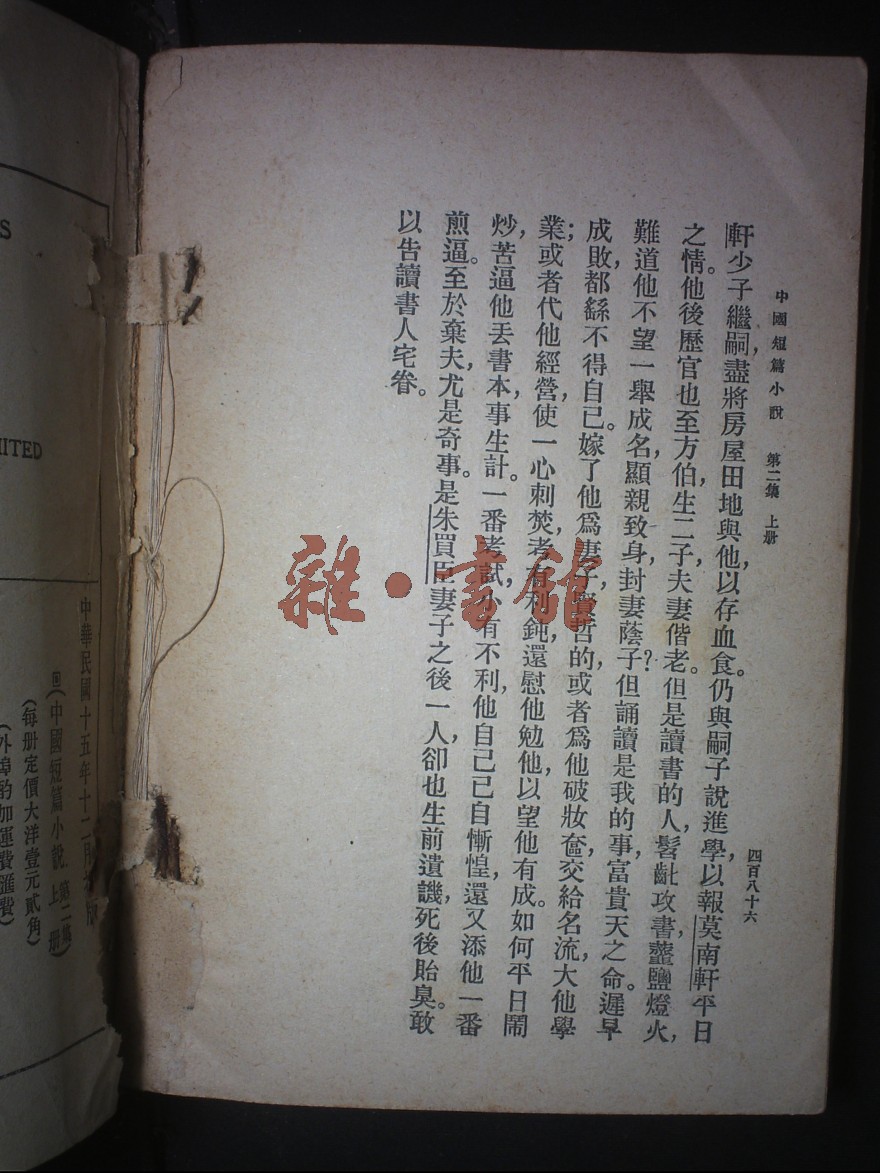 中國短篇小說 第二集 上册
四百八十六
軒少子繼嗣,盡將房屋田地與他以存血食。仍與嗣子說進學,以報莫南軒平日
之情。他後歷官也至方伯,生二子,夫妻偕老。但是讀書的人,髫齓攻書,虀鹽燈火,
難道他不望一舉成名,顯親致身,封妻蔭子?但誦讀是我的事,富貴天之命。遲早
成敗,都繇不得自己。嫁了他爲妻子,賢哲的,或者爲他破妝奩,交給名流,大他學
業;或者代他經營,使一心刺焚,考有利鈍,還慰他勉他,以望他有成。如何平日鬧
炒,苦逼他丟書本,事生計。一番考試,小有不利,他自己已自慚惶,還又添他一番
煎逼。至於棄夫,尤是奇事。是朱買臣妻子之後一人,卻也生前遺譏,死後貽臭。敢
以告讀書人宅眷。
雜·書館
S
ITED
中華民國十五年十二月 版
(中國短篇小說 第二集 上册)
(每册定價大洋壹元貳角)
(外埠酌加運費匯費)